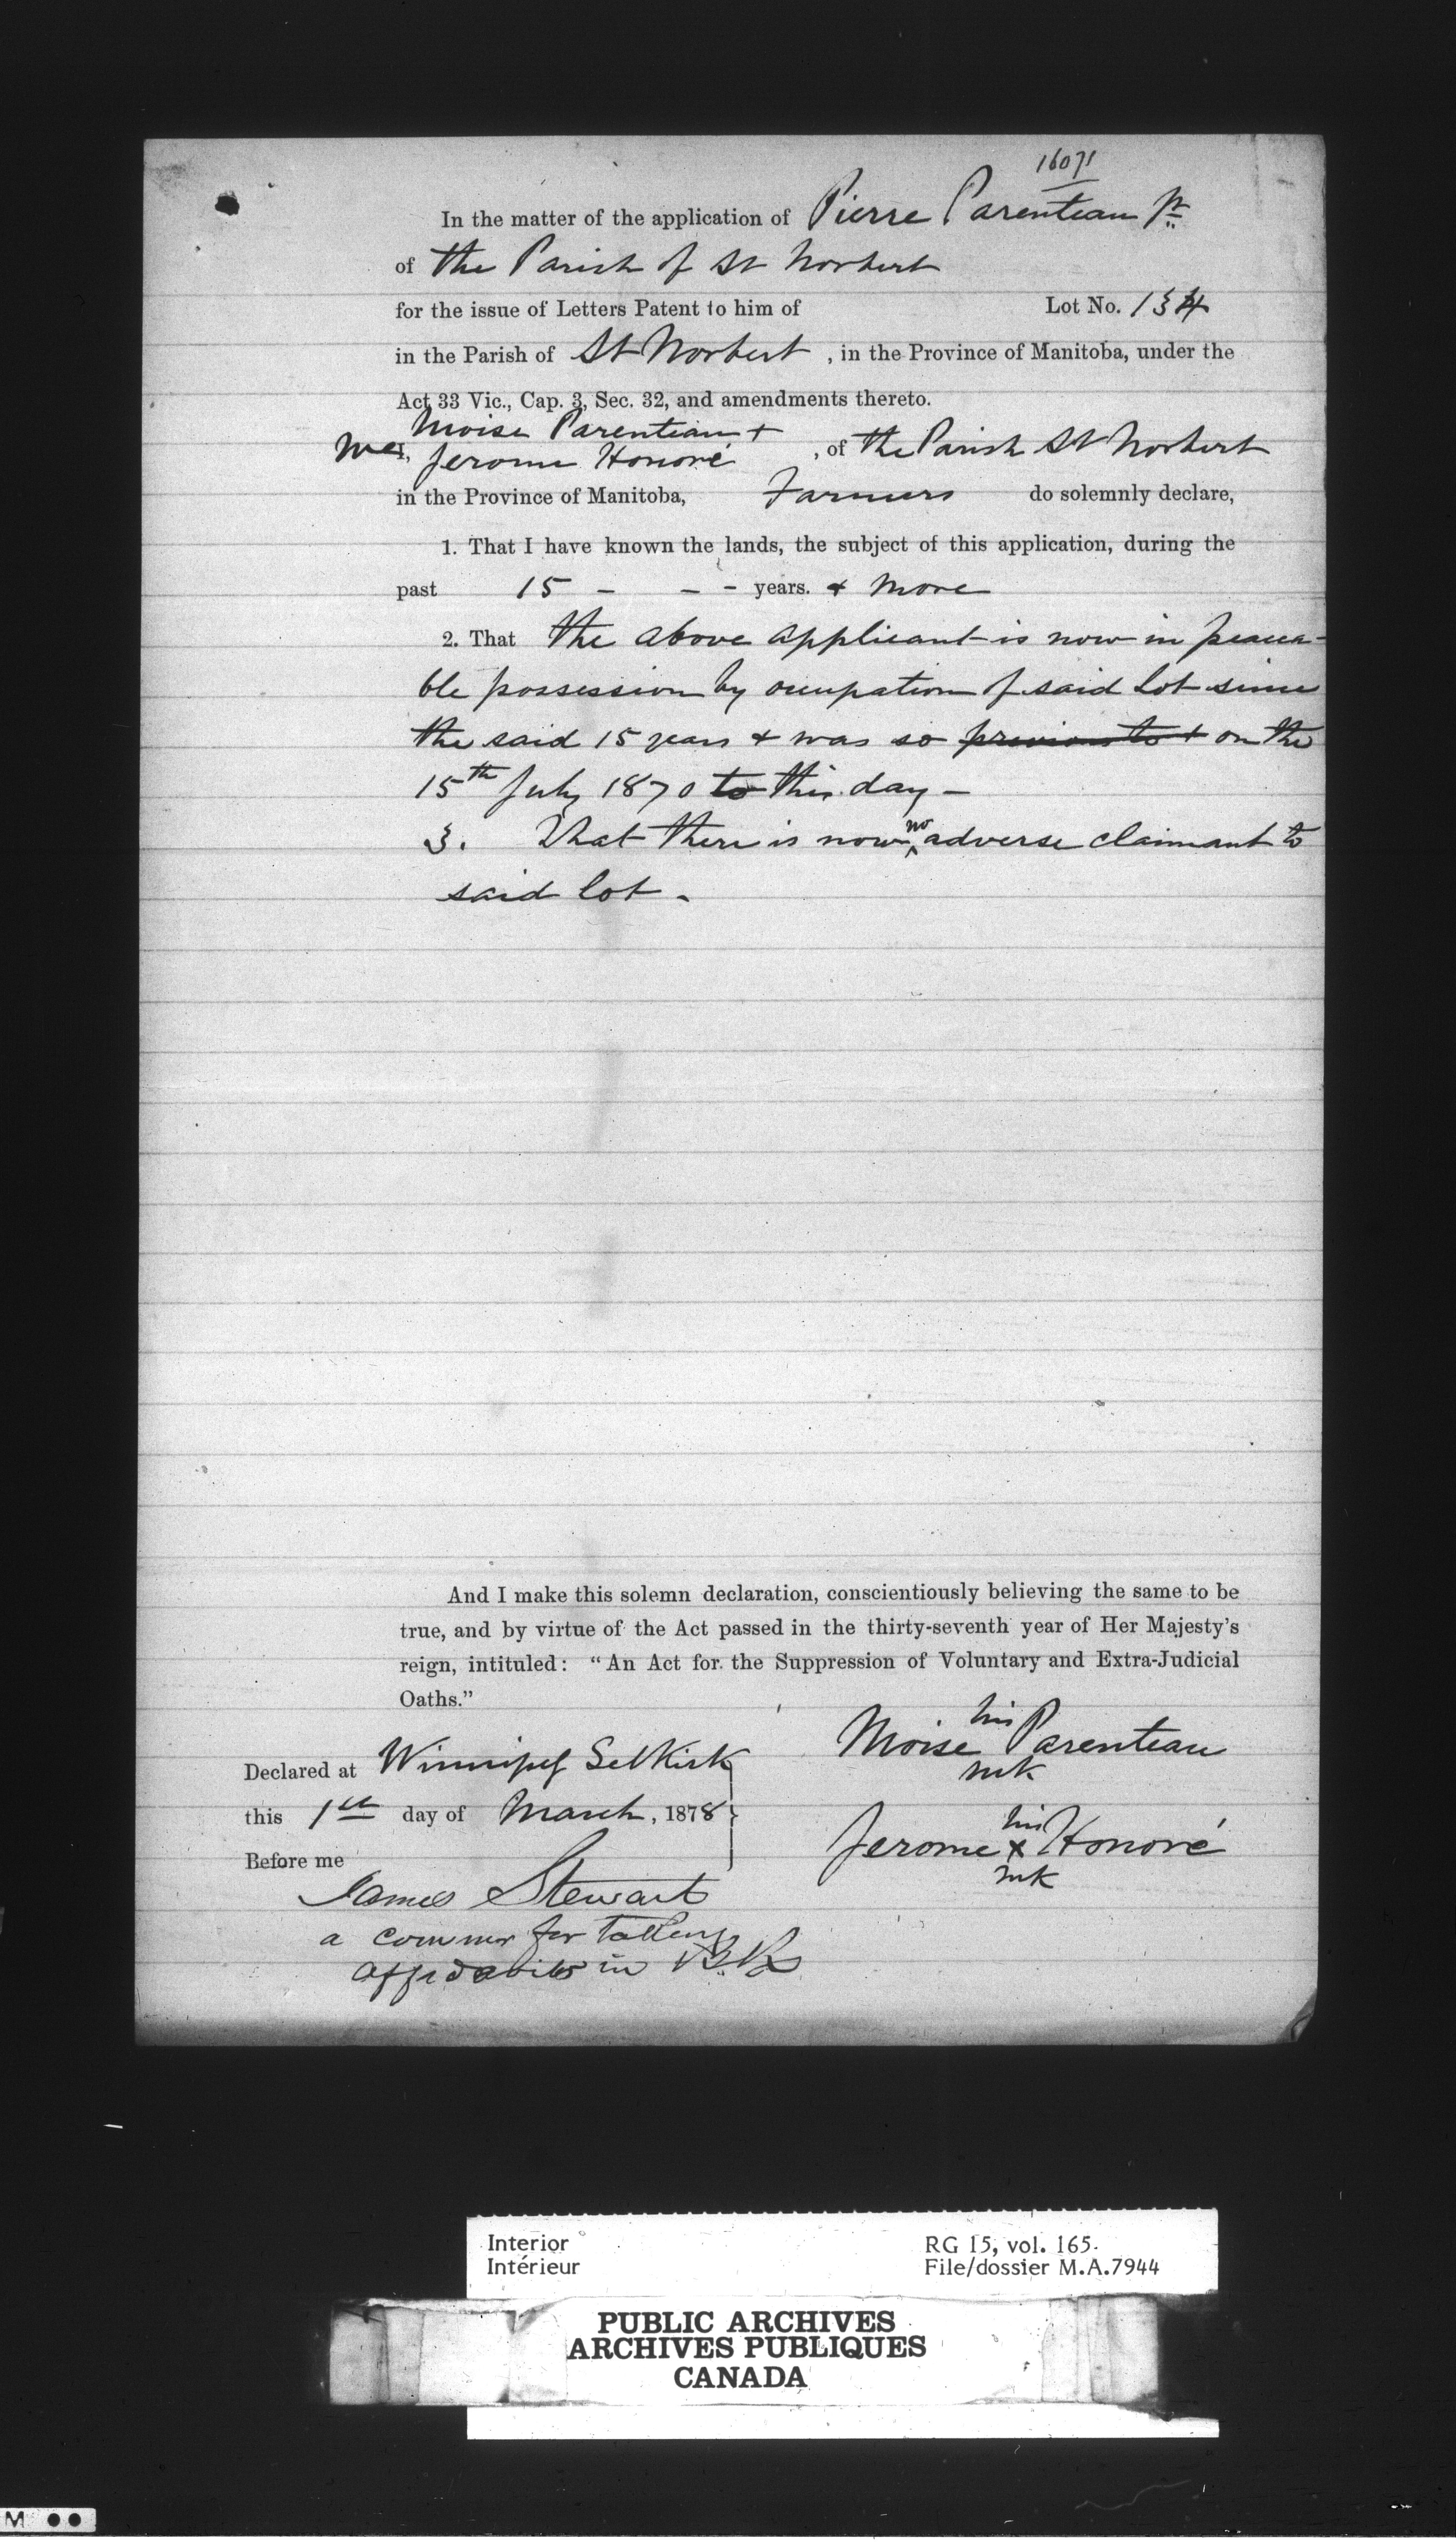 16071
In the matter of the application of Pierre Parenteau Jr
of the Parish of St Norbert
for the issue of Letters Patent to him of Lot No. 134
in the Parish of St Norbert , in the Province of Manitoba, under the
Act 33 Vic., Cap. 3, Sec. 32, and amendments thereto.
Moise Parenteau +
We I, Jerome Honoré , of the Parish St Norbert
in the Province of Manitoba, Farmers do solemnly declare,
1. That I have known the lands, the subject of this application, during the
past 15 - - - years. + more
2. That the above applicant is now in peacea-
ble possession by occupation of said lot since
the said 15 years + was so previous to + on the
15th July 1870 to this day -
3. That there is now no adverse claimant to
said lot -
And I make this solemn declaration, conscientiously believing the same to be
true, and by virtue of the Act passed in the thirty-seventh year of Her Majesty's
reign, intituled: "An Act for the Suppression of Voluntary and Extra-Judicial
Oaths."
Declared at Winnipeg Selkirk
this 1st day of March, 1878
Before me
James Stewart
a commr for taking
affidavits in B.R.
his
Moise Parenteau
mk
his
Jerome x Honoré
mk
Interior
Intérieur
RG 15, vol. 165.
File/dossier M.A.7944
PUBLIC ARCHIVES
ARCHIVES PUBLIQUES
CANADA
M